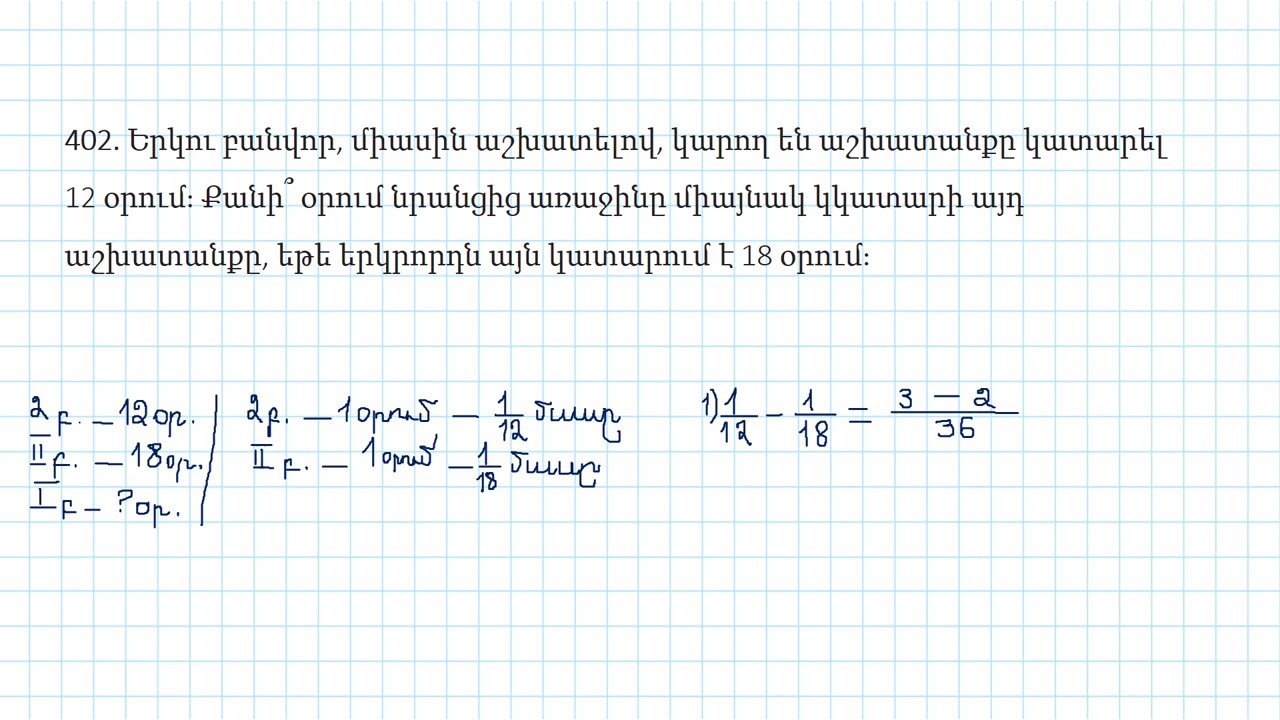 402. Երկու բանվոր, միասին աշխատելով, կարող են աշխատանքը կատարել
12 օրում։ Քանի՞ օրում նրանցից առաջինը միայնակ կկատարի այդ
աշխատանքը, եթե երկրորդն այն կատարում է 18 օրում։
2 բ. – 12 օր.
II բ. – 18 օր.
I բ – ? օր.
2 բ. – 1 օրում – 1/12 մասը
II բ. – 1 օրում – 1/18 մասը
1) 1/12 – 1/18 = 3 – 2/36